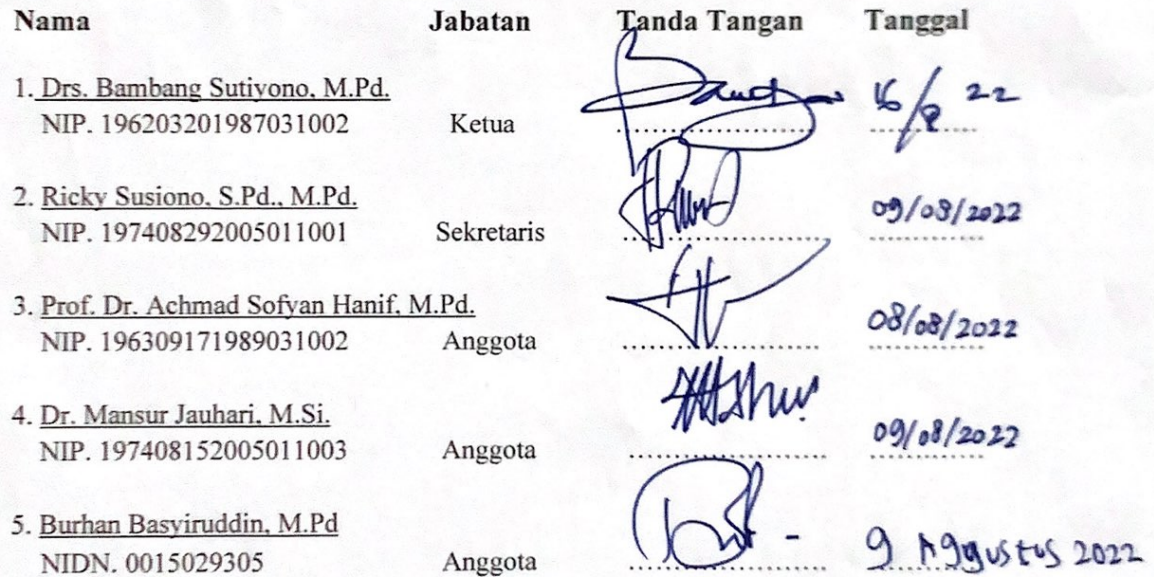 Nama Jabatan Tanda Tangan Tanggal
1. Drs. Bambang Sutiyono, M.Pd. 16/8 22
NIP. 196203201987031002 Ketua
2. Ricky Susiono, S.Pd., M.Pd. 09/08/2022
NIP. 197408292005011001 Sekretaris
3. Prof. Dr. Achmad Sofyan Hanif, M.Pd. 08/08/2022
NIP. 196309171989031002 Anggota
4. Dr. Mansur Jauhari, M.Si. 09/08/2022
NIP. 197408152005011003 Anggota
5. Burhan Basyiruddin, M.Pd
NIDN. 0015029305 Anggota 9 Agustus 2022